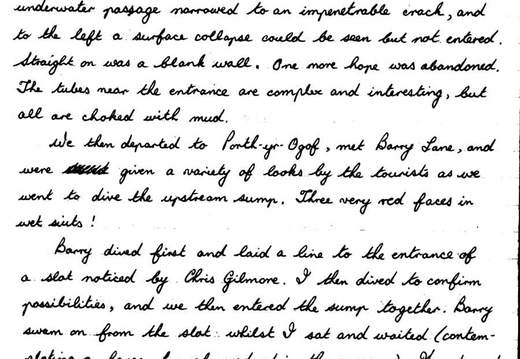 underwater passage narrowed to an impenetrable crack, and
to the left a surface collapse could be seen but not entered.
Straight on was a blank wall. One more hope was abandoned.
The tubes near the entrance are complex and interesting, but
all are choked with mud.
We then departed to Porth-yr-Ogof, met Barry Lane, and
were given a variety of looks by the tourists as we
went to dive the upstream sump. Three very red faces in
wet suits!
Barry dived first and laid a line to the entrance of
a slot noticed by Chris Gilmore. I then dived to confirm
possibilities, and we then entered the sump together. Barry
swam on from the slot whilst I sat and waited (contem-